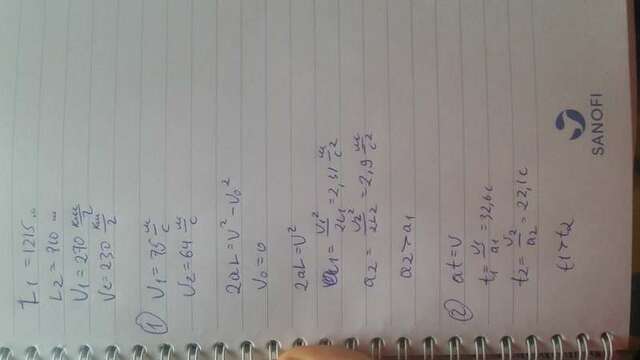 L₁ = 1215 м
L₂ = 710 м
V₁ = 270 км/г
V₂ = 230 км/г
① V₁ = 75 м/с
V₂ = 64 м/с
2aL = V² - V₀²
V₀ = 0
2aL = V²
a₁ = V₁²/2L₁ = 2,31 м/с²
a₂ = V₂²/2L₂ = 2,9 м/с²
a₂ > a₁
② at = V
t₁ = V₁/a₁ = 32,6 с
t₂ = V₂/a₂ = 22,1 с
t₁ > t₂
SANOFI